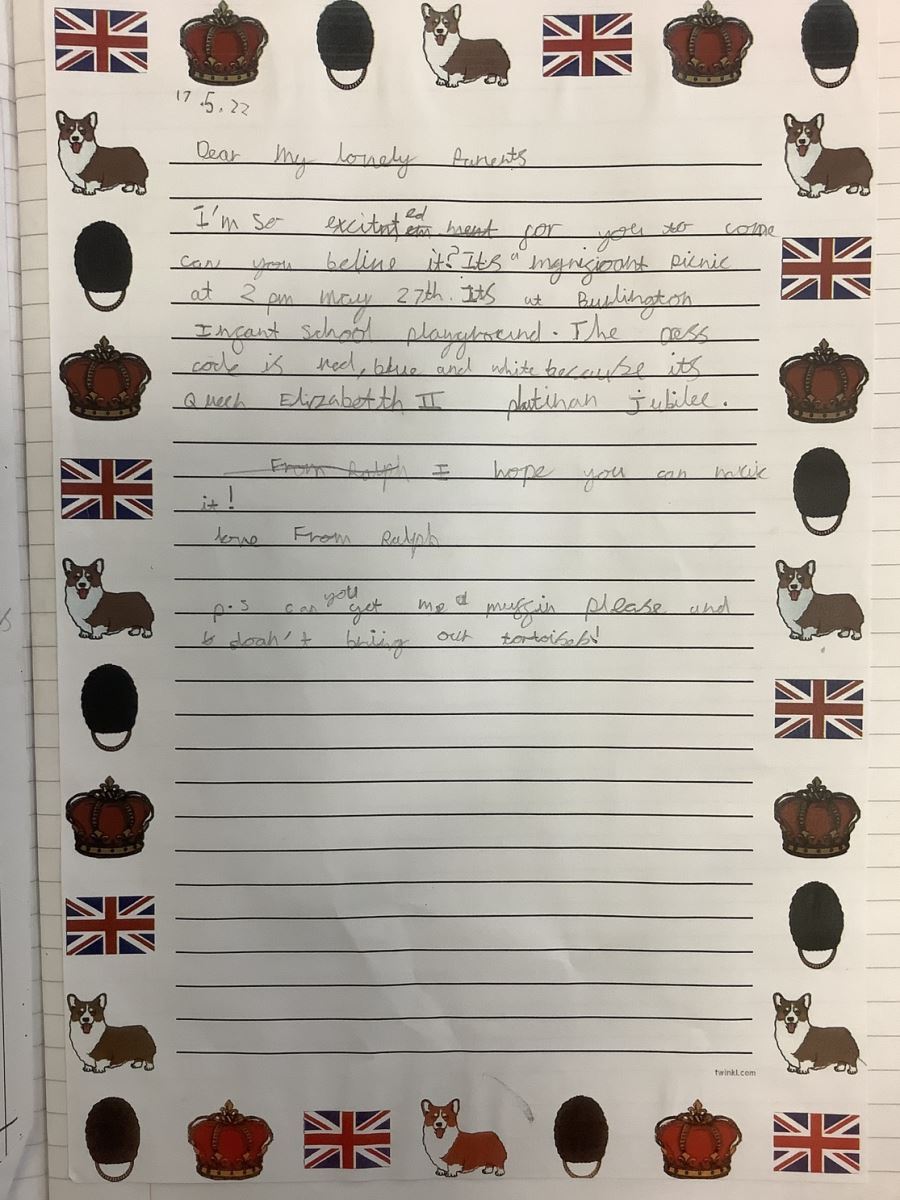 17.5.22
Dear my lonely Parents
I'm so excitnt ed em ment for you to come
can you belive it? Its a mgnigigant picnic
at 2 pm may 27th. Its at Burlington
Infant school playground. The dess
code is red, blue and white because its
Queen Elizabetth II platinan jubilee.
From Ralph I hope you can make
it!
love From Ralph
p.s can you get me a muffin please and
doah't bring our tortoises!
twinkl.com